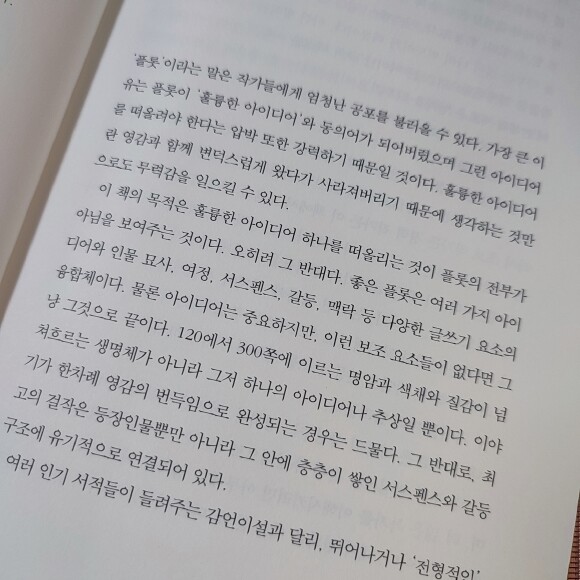 '플롯'이라는 말은 작가들에게 엄청난 공포를 불러올 수 있다. 가장 큰 이
유는 플롯이 '훌륭한 아이디어'와 동의어가 되어버렸으며 그런 아이디어
를 떠올려야 한다는 압박 또한 강력하기 때문일 것이다. 훌륭한 아이디어
란 영감과 함께 변덕스럽게 왔다가 사라져버리기 때문에 생각하는 것만
으로도 무력감을 일으킬 수 있다.
이 책의 목적은 훌륭한 아이디어 하나를 떠올리는 것이 플롯의 전부가
아님을 보여주는 것이다. 오히려 그 반대다. 좋은 플롯은 여러 가지 아이
디어와 인물 묘사, 여정, 서스펜스, 갈등, 맥락 등 다양한 글쓰기 요소의
융합체이다. 물론 아이디어는 중요하지만, 이런 보조 요소들이 없다면 그
냥 그것으로 끝이다. 120에서 300쪽에 이르는 명암과 색채와 질감이 넘
쳐흐르는 생명체가 아니라 그저 하나의 아이디어나 추상일 뿐이다. 이야
기가 한차례 영감의 번득임으로 완성되는 경우는 드물다. 그 반대로, 최
고의 걸작은 등장인물뿐만 아니라 그 안에 층층이 쌓인 서스펜스와 갈등
구조에 유기적으로 연결되어 있다.
여러 인기 서적들이 들려주는 감언이설과 달리, 뛰어나거나 '전형적인'